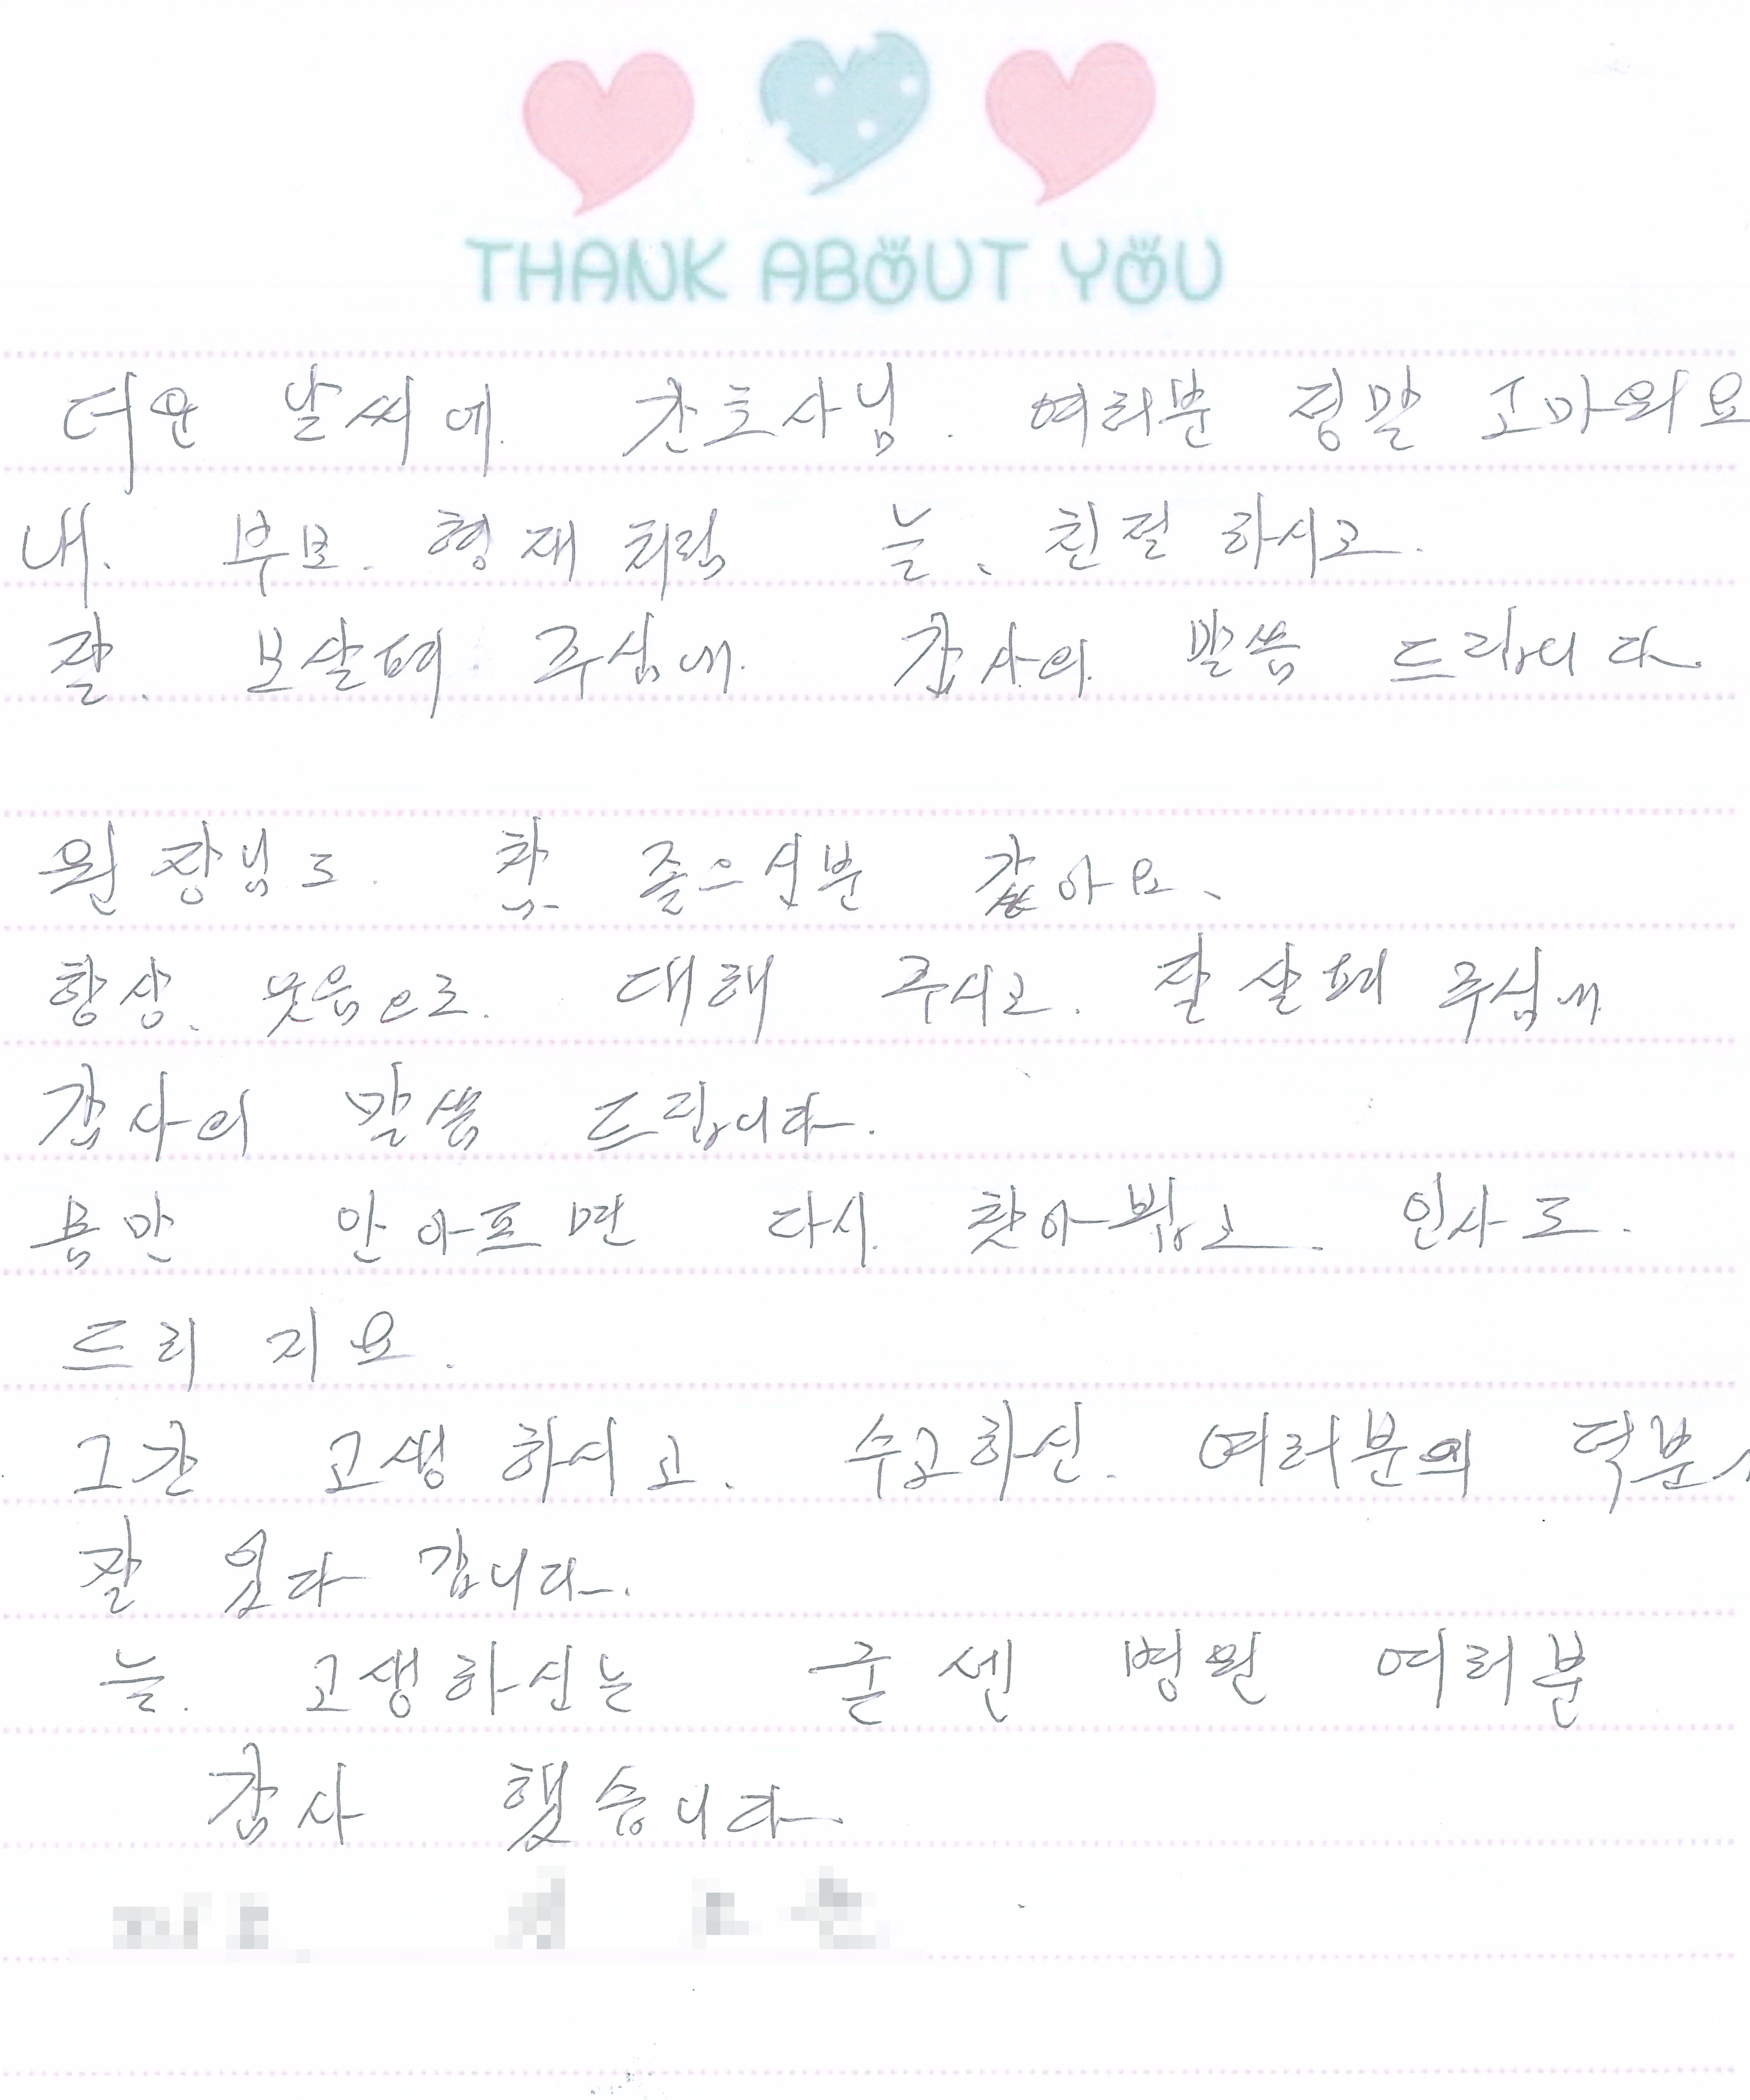 THANK ABOUT YOU
더운 날씨에. 간호사님. 여러분 정말 고마워요
내. 부모. 형재처럼 늘、친절하시고.
잘. 보살펴 주심에. 감사의. 말씀 드립니다.
원장님도. 참 좋으신분 같아요、
항상、웃음으로. 대해 주시고. 잘 살펴 주심에
감사의 말씀 드립니다.
몸만 안아프면 다시. 찾아뵙고. 인사도.
드리지요.
그간 고생하시고、수고하신. 여러분의 덕분
잘 있다 갑니다.
늘. 고생하신는 굳센 병원 여러분
감사 했습니다.